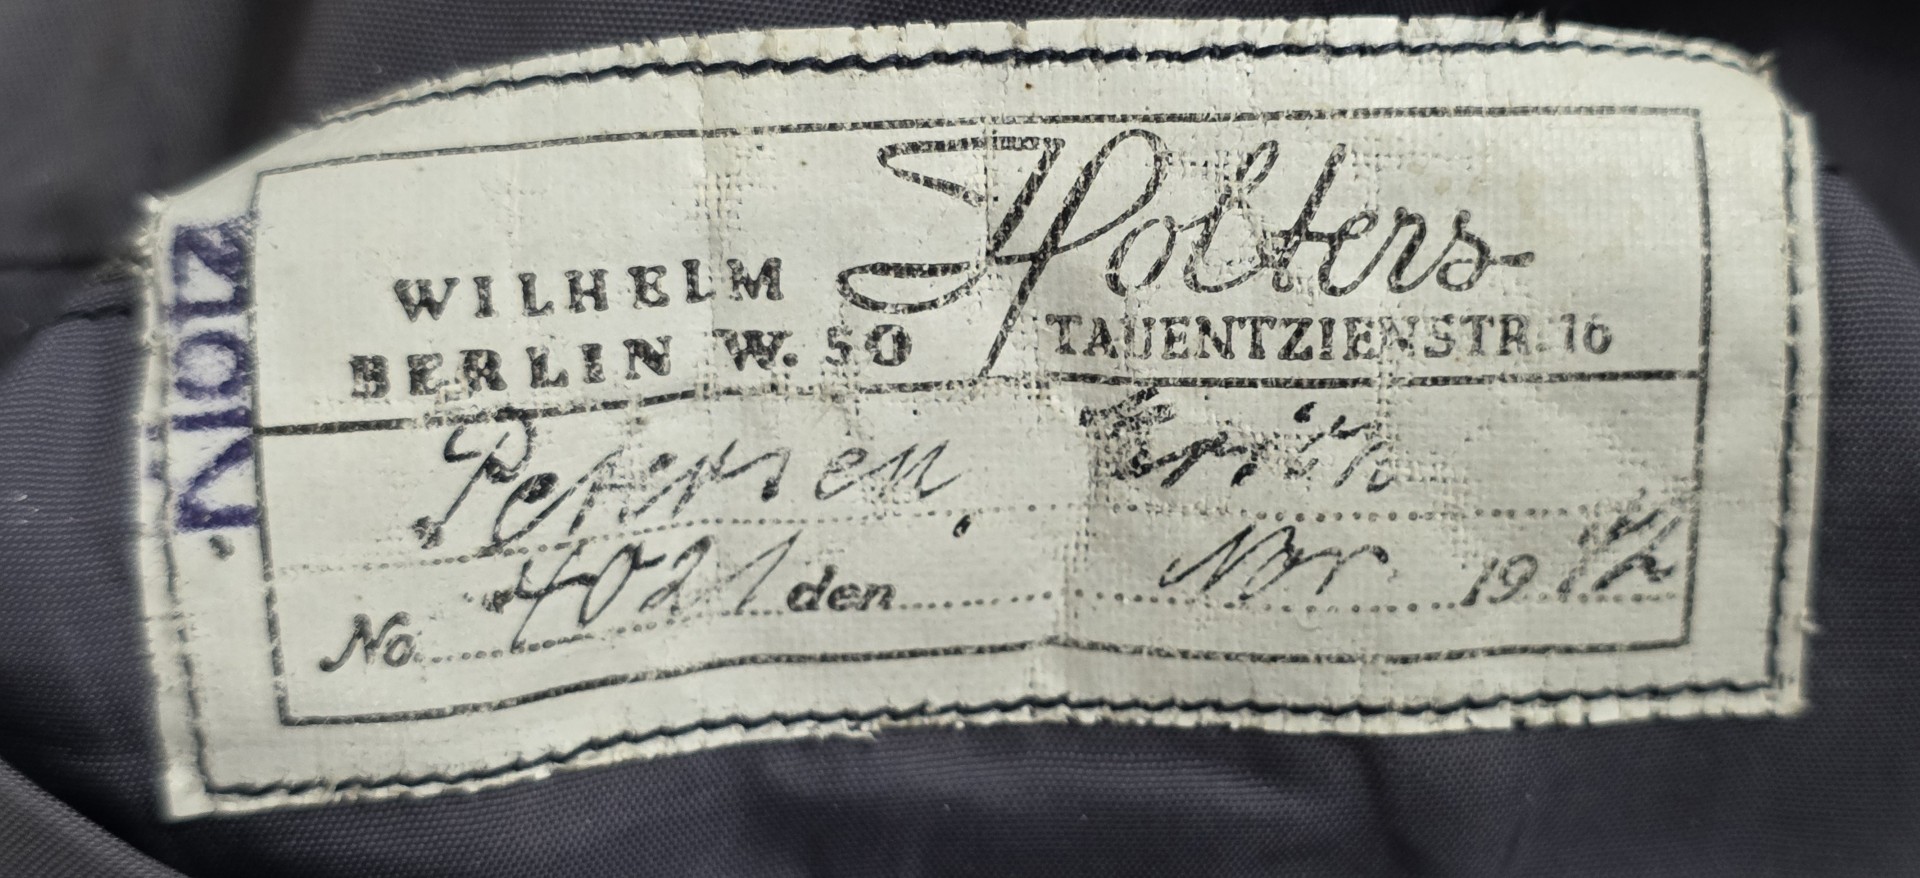 WILHELM Holters
BERLIN W. 50 TAUENTZIENSTR. 16
Petersen, Erich
No. 4021 den Nov. 1942